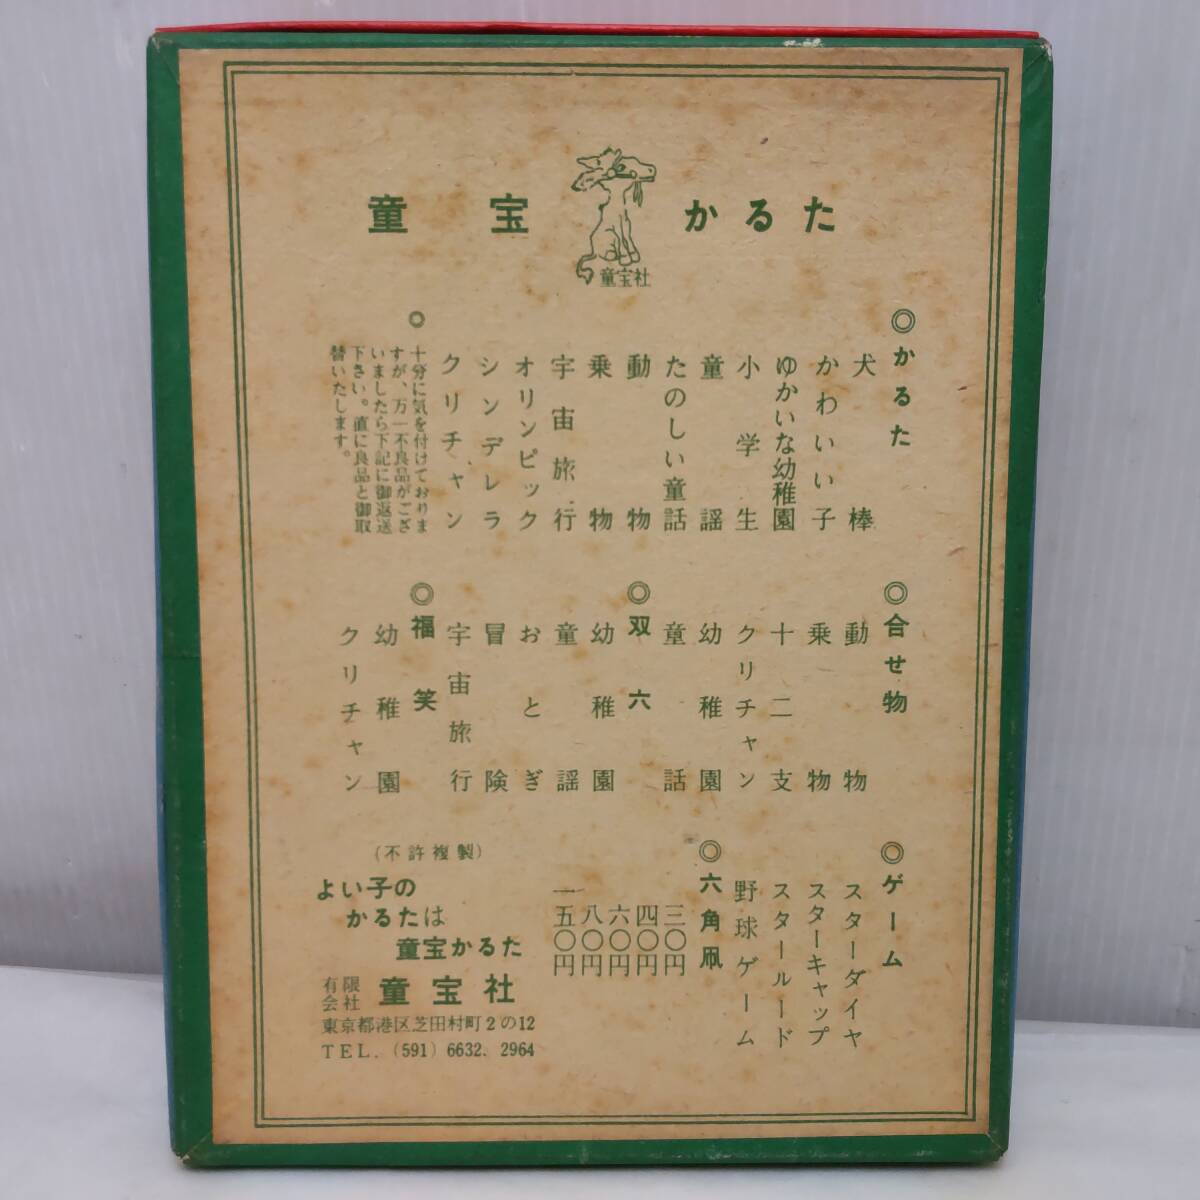 童宝
かるた
童宝社
◎かるた
犬棒
かわいい子
ゆかいな幼稚園
小学生
童謡
たのしい童話
動物
乗物
宇宙旅行
オリンピック
シンデレラ
クリチャン
○
十分に気を付けておりま
すが、万一不良品がござ
いましたら下記に御返送
下さい。直に良品と御取
替いたします。
◎合せ物
動物
乗物
十二支
クリチャン
幼稚園
童話
◎双六
幼稚園
童謡
おとぎ
冒険
宇宙旅行
◎福笑
幼稚園
クリチャン
◎ゲーム
スターダイヤ
スターキャップ
スタールード
野球ゲーム
◎六角凧
三〇円
四〇円
六〇円
八〇円
一五〇円
(不許複製)
よい子の
かるたは
童宝かるた
有限会社 童宝社
東京都港区芝田村町2の12
TEL. (591) 6632. 2964